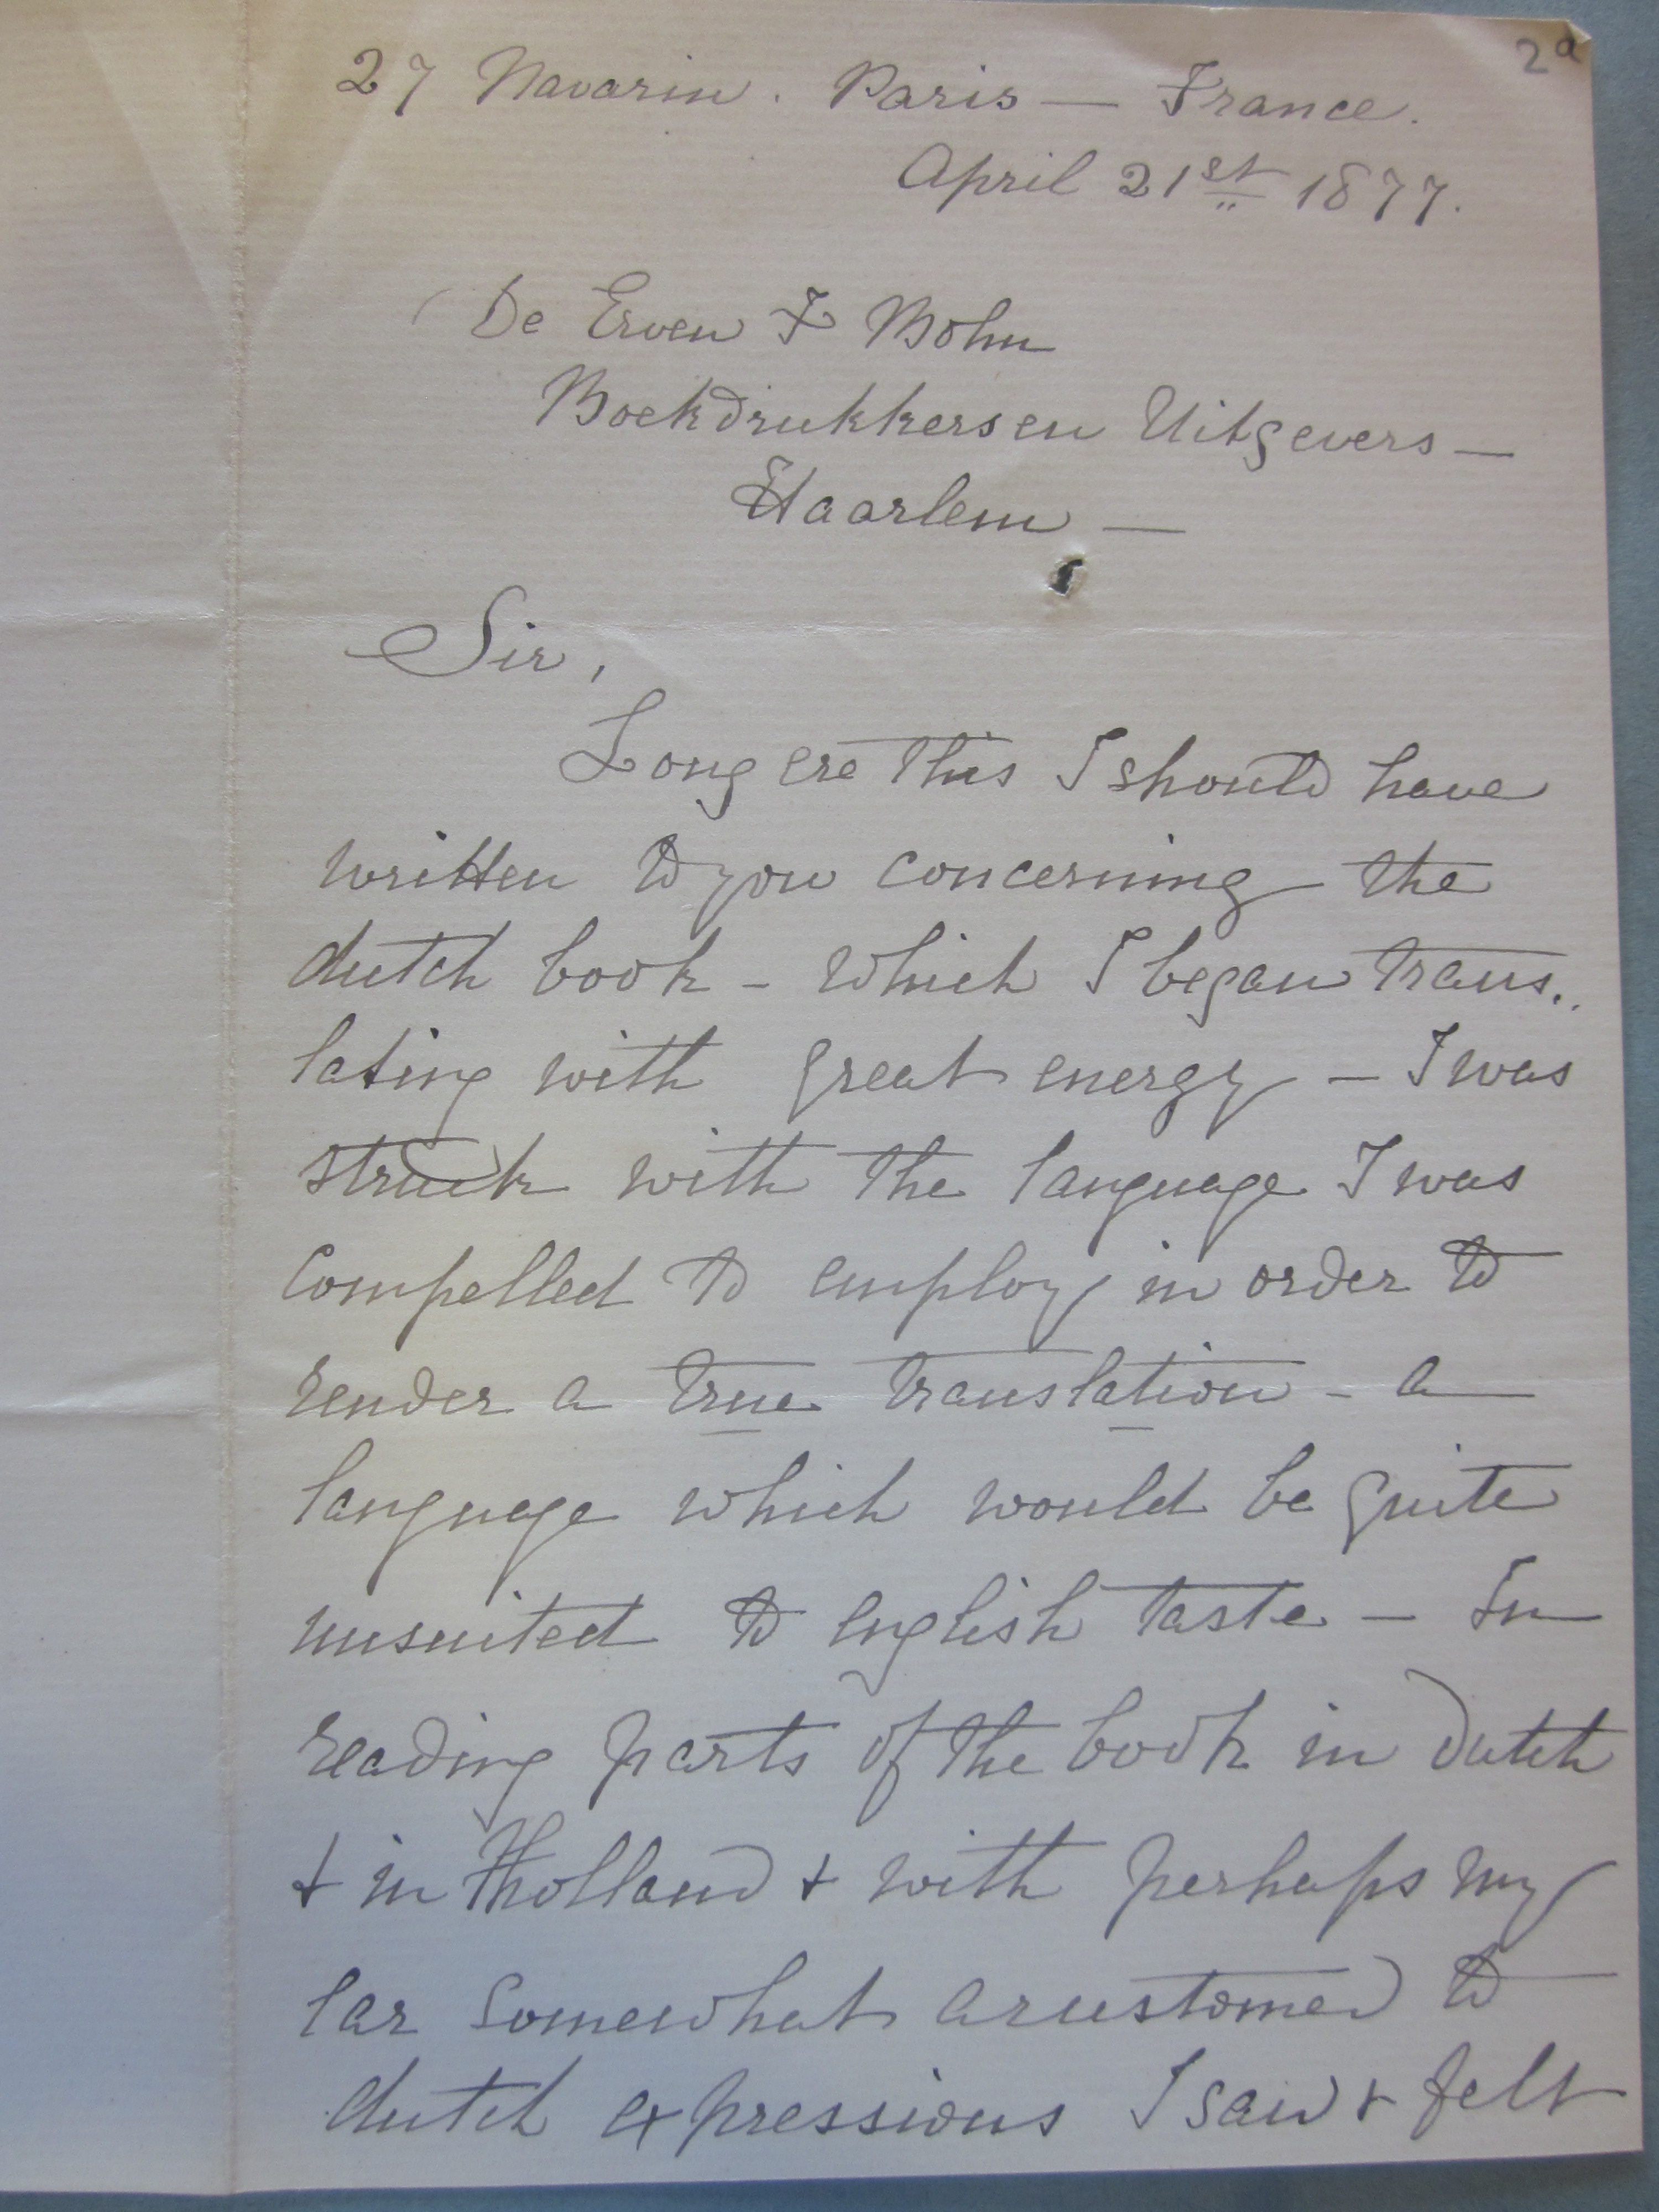 2a
27 Navarin. Paris — France.
April 21st 1877.
De Erven F Bohn
Boekdrukkers en Uitgevers —
Haarlem —
Sir,
Long ere this I should have
written to you concerning the
dutch book - which I began trans..
lating with great energy — I was
struck with the language I was
compelled to employ in order to
render a true translation - a
language which would be quite
unsuited to english taste — In
reading parts of the book in dutch
& in Holland & with perhaps my
ear somewhat accustomed to
dutch expressions I saw & felt